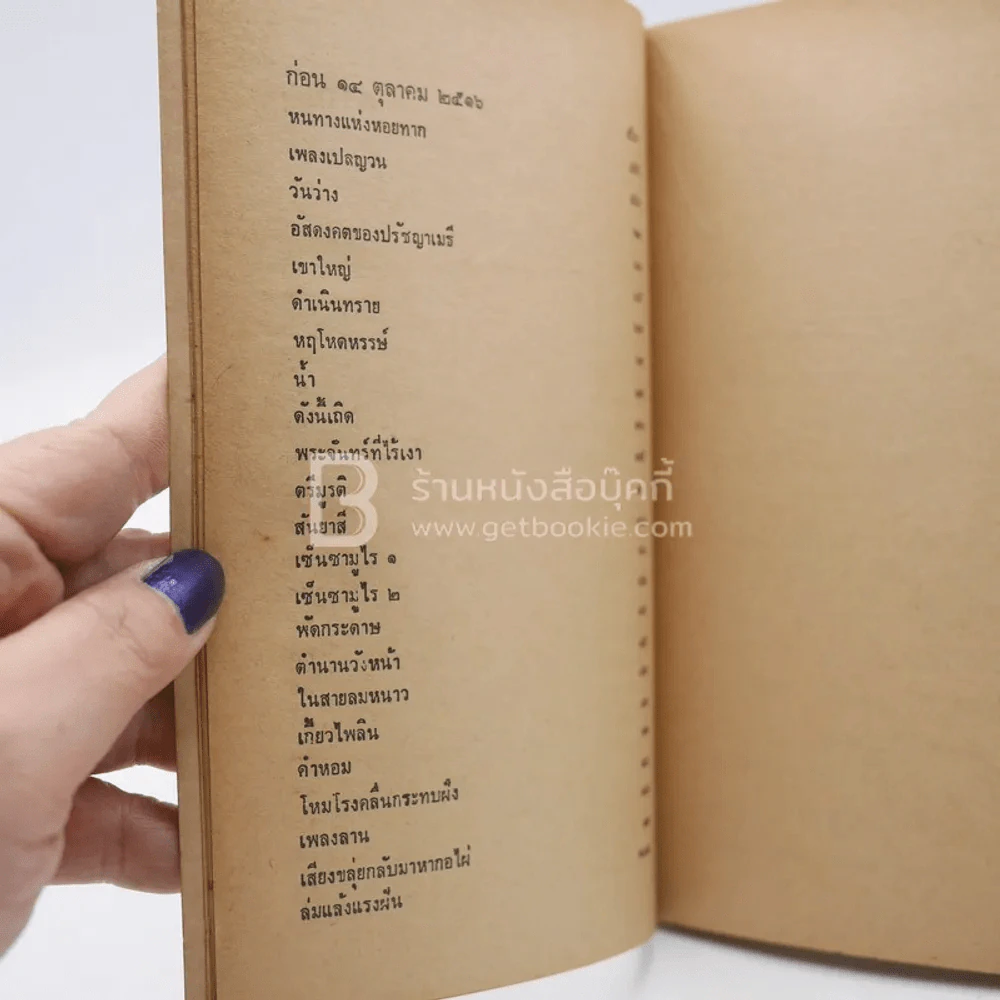 ก่อน ๑๔ ตุลาคม ๒๕๑๖
หนทางแห่งหอยทาก
เพลงเปลญวน
วันว่าง
อัสดงคตของปรัชญาเมธี
เขาใหญ่
ดำเนินทราย
หฤโหดหรรษ์
น้ำ
ดังนี้เถิด
พระจันทร์ที่ไร้เงา
ตรีมูรติ
สันยาสี
เซ็นซามูไร ๑
เซ็นซามูไร ๒
พัดกระดาษ
ตำนานวังหน้า
ในสายลมหนาว
เกี้ยวไพลิน
คำหอม
โหมโรงคลื่นกระทบฝั่ง
เพลงลาน
เสียงขลุ่ยกลับมาหากอไผ่
ล่มแล้งแรงฝน
B ร้านหนังสือบุ๊คกี้
www.getbookie.com